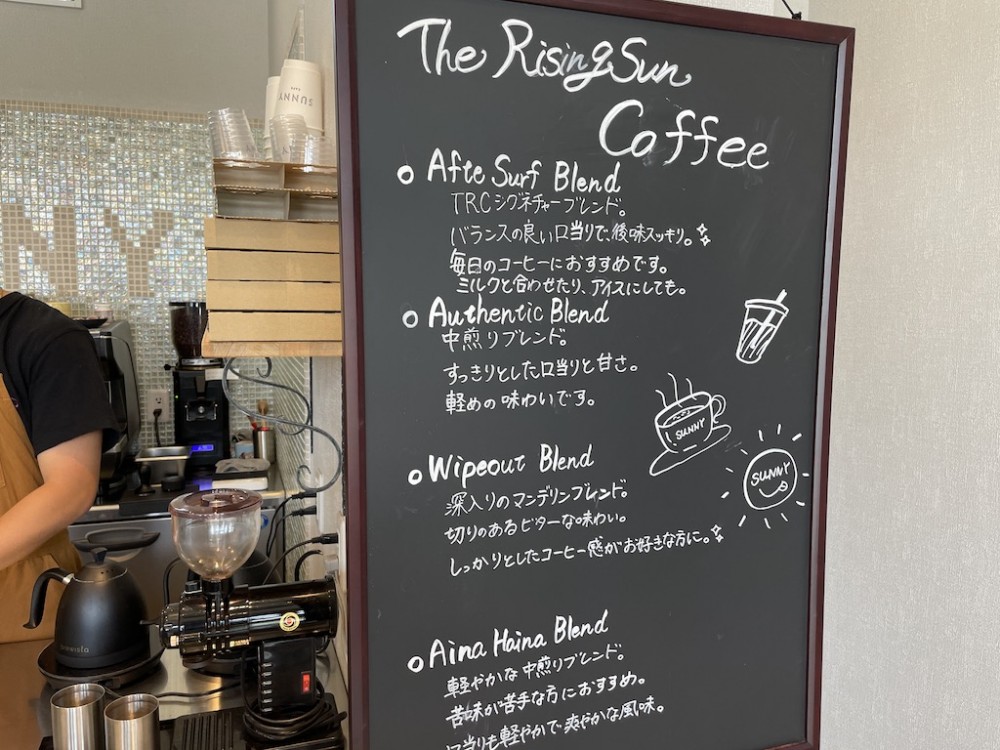 The Rising Sun
Coffee
Afte Surf Blend
TRCシグネチャーブレンド。
バランスの良い口当りで、後味スッキリ。
毎日のコーヒーにおすすめです。
ミルクと合わせたり、アイスにしても。
Authentic Blend
中煎りブレンド。
すっきりとした口当りと甘さ。
軽めの味わいです。
Wipeout Blend
深入りのマンデリンブレンド。
切りのあるビターな味わい。
しっかりとしたコーヒー感がお好きな方に。
Aina Haina Blend
軽やかな中煎りブレンド。
苦味が苦手な方におすすめ。
口当りも軽やかで爽やかな風味。
SUNNY
SUNNY
SUNNY
NNY
brewista